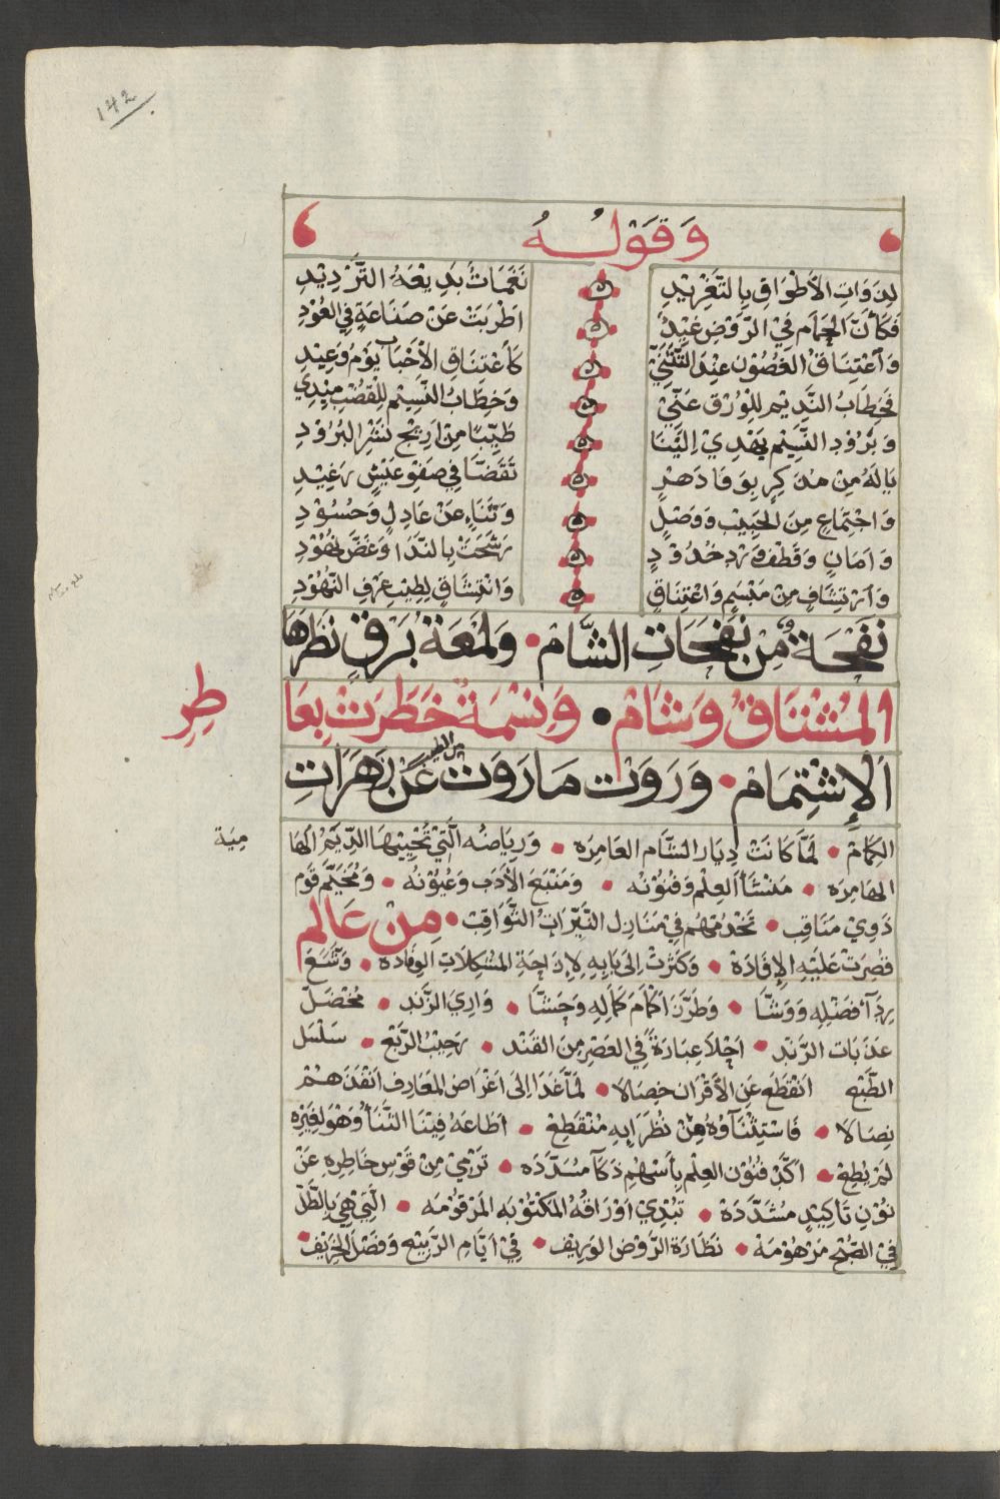 ١٤٢
وَقَوْلُهُ
لِذَوَاتِ الأَطْوَاقِ بِالتَغْرِيْدِ نَغَمَاتٌ بَدِيْعَةُ التَّرْدِيْدِ
فَكَأَنَّ الحَمَام فِيْ الرَّوْضِ غِيْدٌ اَطْرَبَتْ عَنْ صَنَاعَةٍ فِي العُوْدِ
وَاَعْتِنَاقُ الغُصُوْن عِنْدَ التَّثَنِّيْ كَاعْتِنَاقِ الأَحْبَابِ يَوْمَ وَعِيْدِ
فَخِطَابُ النَّدِيْمِ لِلْوُرْقِ عَنِّيْ وَخِطَابُ النَّسِيْمِ لِلْقُضْبِ مِيْدِيْ
وَبُرُوْدِ النَّسِيْمِ يَهْدِيْ اِلَيْنَا طَيِّبًا مِنْ اَرِيْجِ نَشْرِ البُرُوْدِ
يَالَهُ مِنْ مُدَكِرٍ بِوَفَا دَهْرٍ تَقَضَّا فِي صَفْوِ عَيْشٍ رَغِيْدِ
وَاجْتِمَاعٍ مِنَ الحَبِيْبِ وَوَصْلٍ وَتَنَاءٍ عَنْ عَاذِلٍ وَحُسُوْدِ
وَاَمَانٍ وَقَطْفِ وَرْدِ خُدُوْدٍ رَشَحَتْ بِالنَّدَا وَغَضِّ نُهُوْدِ
وَاَرْتِشَافٍ مِنْ مَبْسَمٍ وَاعْتِنَاقٍ وَانْتِشَاقٍ لِطِيْبِ عَرْفِ النُّهُوْدِ
نَفْحَةٌ مِّنْ نَفَحَاتِ الشَّامْ • وَلَمْعَةُ بَرْقٍ نَظَرهَا
المُشْتَاقُ وَشَامْ • وَنَسْمَةٌ خَطَرَتْ بِعَا
طِرِ
اَلإِشْتِمَامْ • وَرَوَتْ مَا رَوَتْ عَنْ زَهَرَاتِ
الكِمَامْ • لَمَّا كَانَتْ دِيَار الشَّام العَامِرَه • وَرِيَاضُه الَّتِيْ تُحْيِيْهَا الدِّيَمُ الهَا
مِيَة
الهَامِرَه • مَنْشَأَ العِلْمِ وَفُنُوْنُه • وَمَنْبَعَ الأَدَب وَعُيُوْنُه • وَمُخَيَّم قَوْم
ذَوِيْ مَنَاقِب • تَخْدُمُهُم فِيْ مَنَازِل النَّيِّرَاتُ الثَّوَاقِبْ • مِنْ عَالِم
قَصُرَتْ عَلَيْهِ الإِفَادَة • وَكَثُرَتْ اِلَى بَابِهِ لإِزَاحَةِ المُشْكِلَاتِ الوِفَادَه • وَشَّعَ
بِرِدَآ فَضْلِهِ وَوَشَّا • وَطَرَّزَ اَكْمَامَ كَمَالِهِ وَحَشَّا • وَارِيَ الزَّنْدِ • مُخْضَلّ
عَذَبَات الرَّنْدِ • اَجْلَا عِبَارَةً فِي العَصْرِ مِنَ القَنْد • رَحِيْبُ الرَّبْع • سَلْسَل
الطَّبْعِ اَنْقَطَعَ عَنِ الأَقْرَانِ خِصَالَا • لَمَّا غَدَا اِلَى اَغْرَاضِ المَعَارِفِ اَنْفَذَ هُمْ
نِصَالَا • فَاسْتِثْنَآؤُهُ مِنْ نُظَرَائِهِ مُنْقَطِعْ • اَطَاعَهُ فِيْنَا الثَّنَآ وَهْوَ لِغَيْرِهِ
لَمْ يُطِعْ • اَكَّدَ فُنُوْنَ العِلْمِ بِأَسْهُمِ ذَكَآ مُسَدَّدَه • تَرْمِيْ مِنْ قَوْسِ خَاطِرِه عَنْ
نُوْنِ تَأكِيْدٍ مُشَدَّدَة • تُبْدِيْ اَوْرَاقُهُ المَكْتُوْبَه المَرْقُوْمَه • الَّتِيْ هِيَ بِالطَّلّ
فِيْ الصُّبْحِ مَرْهُوْمَهْ • نَضَارَةَ الرَّوْضِ الوَرِيْف • فِيْ اَيَّامِ الرَّبِيْعِ وَفَضْلَ الخَرِيْف •